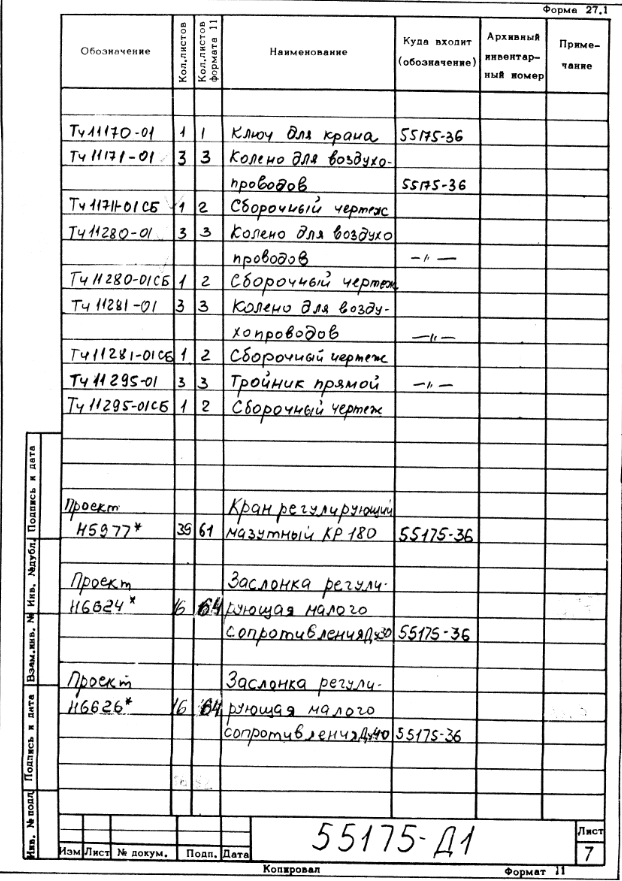 Форма 27.1
Обозначение Кол.листов Кол.листов формата 11 Наименование Куда входит (обозначение) Архивный инвентар- ный номер Приме- чание
Тч11170-01 1 1 Ключ для крана 55175-36
Тч11171-01 3 3 Колено для воздухо-
проводов 55175-36
Тч11171-01СБ 1 2 Сборочный чертеж
Тч11280-01 3 3 Колено для воздухо
проводов —"—
Тч11280-01СБ 1 2 Сборочный чертеж
Тч11281-01 3 3 Колено для возду-
хопроводов —"—
Тч11281-01СБ 1 2 Сборочный чертеж
Тч11295-01 3 3 Тройник прямой —"—
Тч11295-01СБ 1 2 Сборочный чертеж
Проект Кран регулирующий
Н5977* 39 61 мазутный КР 180 55175-36
Проект Заслонка регули-
Н6624* 16 64 рующая малого
сопротивления Ду30 55175-36
Проект Заслонка регули-
Н6626* 16 64 рующая малого
сопротивления Ду40 55175-36
Инв. № подл. Подпись и дата Взам.инв. № Инв. №дубл. Подпись и дата
55175-Д1
Лист
7
Изм Лист № докум. Подп. Дата
Копировал Формат 11